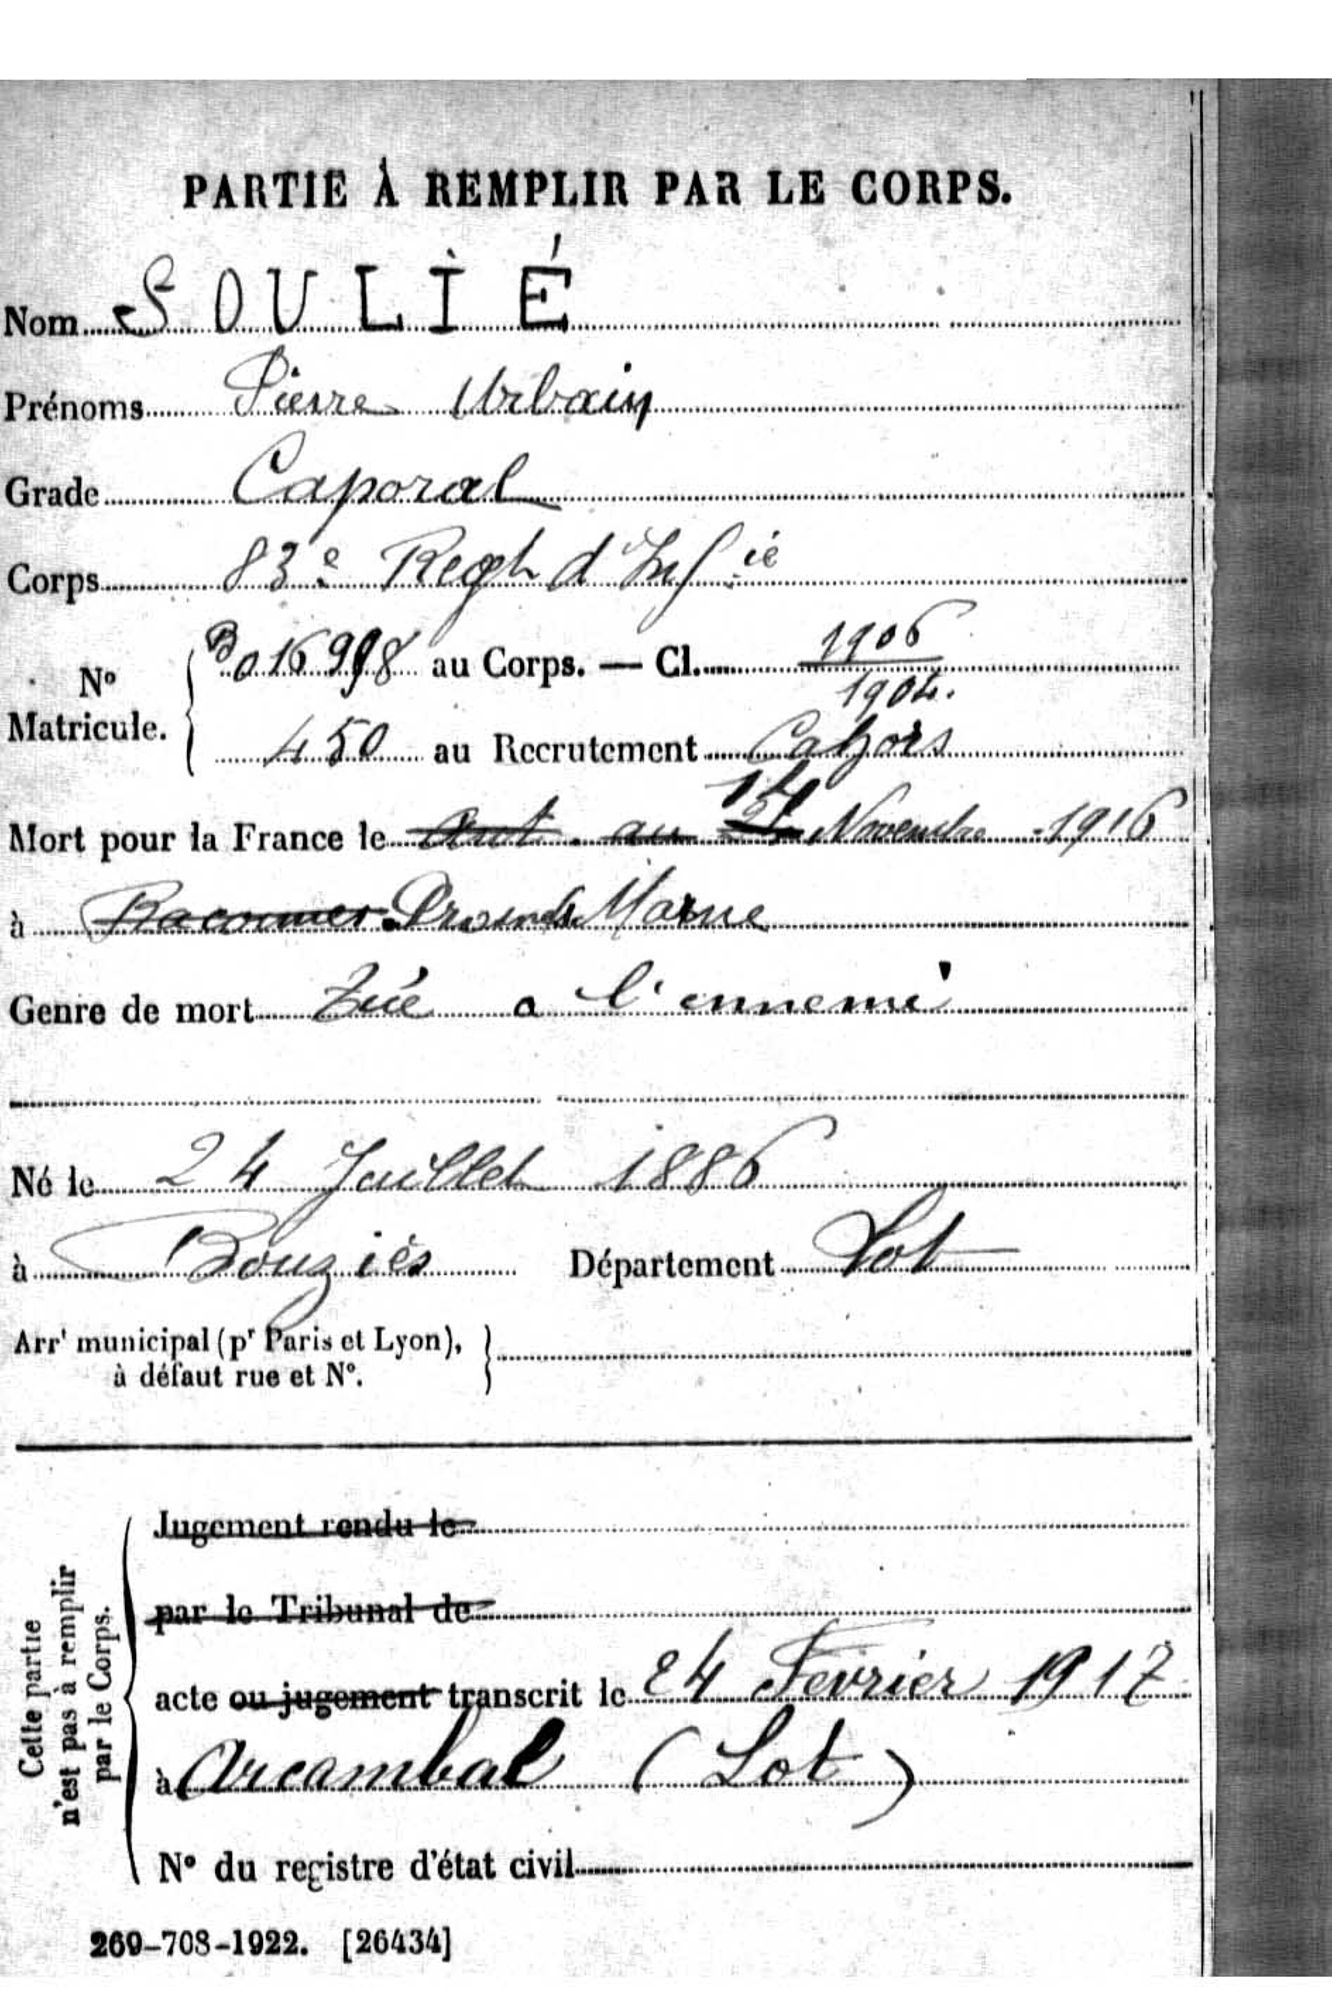 PARTIE À REMPLIR PAR LE CORPS.
Nom SOULIÉ
Prénoms Pierre Urbain
Grade Caporal
Corps 83e Regt d'Inf.ie
No Matricule. B016998 au Corps. — Cl. 1906
1904.
450 au Recrutement Cahors
Mort pour la France le Novembre 1916
à Marne
Genre de mort Tué a l'ennemi
Né le 24 Juillet 1886
à Bouziès Département Lot
Arrt municipal (pr Paris et Lyon),
à défaut rue et N°.
Cette partie
n'est pas à remplir
par le Corps.
Jugement rendu le
par le Tribunal de
acte ou jugement transcrit le 24 Fevrier 1917
à Arcambal (Lot)
N° du registre d'état civil
269-708-1922. [26434]